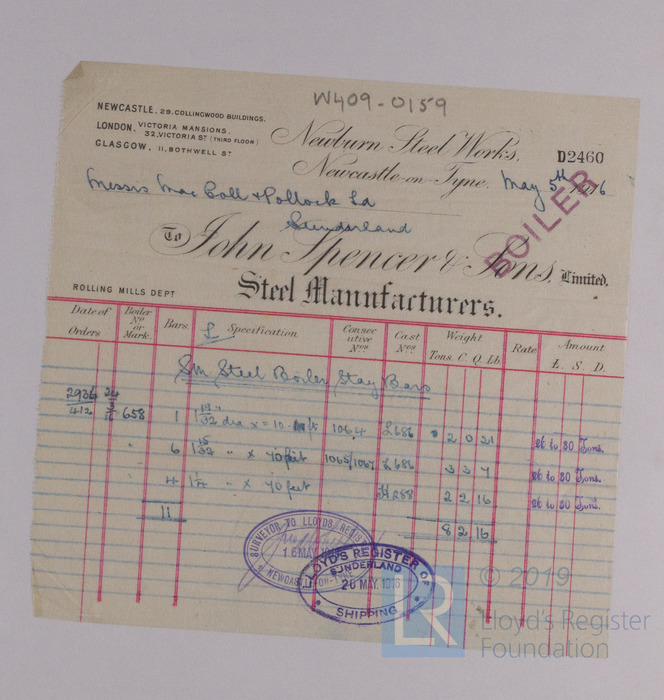 W409-0159
NEWCASTLE. 29, COLLINGWOOD BUILDINGS.
LONDON, VICTORIA MANSIONS,
32, VICTORIA ST (THIRD FLOOR)
GLASGOW, 11, BOTHWELL ST
Newburn Steel Works,
Newcastle-on-Tyne. May 5th 1916
D2460
BOILER
Messrs Mac Coll & Pollock Ld
Sunderland
To John Spencer & Sons, Limited.
Steel Manufacturers.
ROLLING MILLS DEPT
Date of Orders Boiler No or Mark. Bars. Specification Consecutive Nos Cast Nos Weight Tons. C. Q. Lb. Rate Amount £. S. D.
Sm Steel Boiler Stay Bars
2936
412 658 1 dia x 10 1064 £686 2 0 21 26 to 30 Tons.
" 6 " x 40 feet 1065/1067 £686 3 3 7 26 to 30 Tons.
" 4 " x 40 feet H288 2 2 16 26 to 30 Tons.
11 8 2 16
SURVEYOR TO LLOYDS REGIS
16 MAY
NEWCASTLE-ON-TYNE
LLOYD'S REGISTER OF
SUNDERLAND
26 MAY. 1916
SHIPPING
LR
© 2019
Lloyd's Register
Foundation